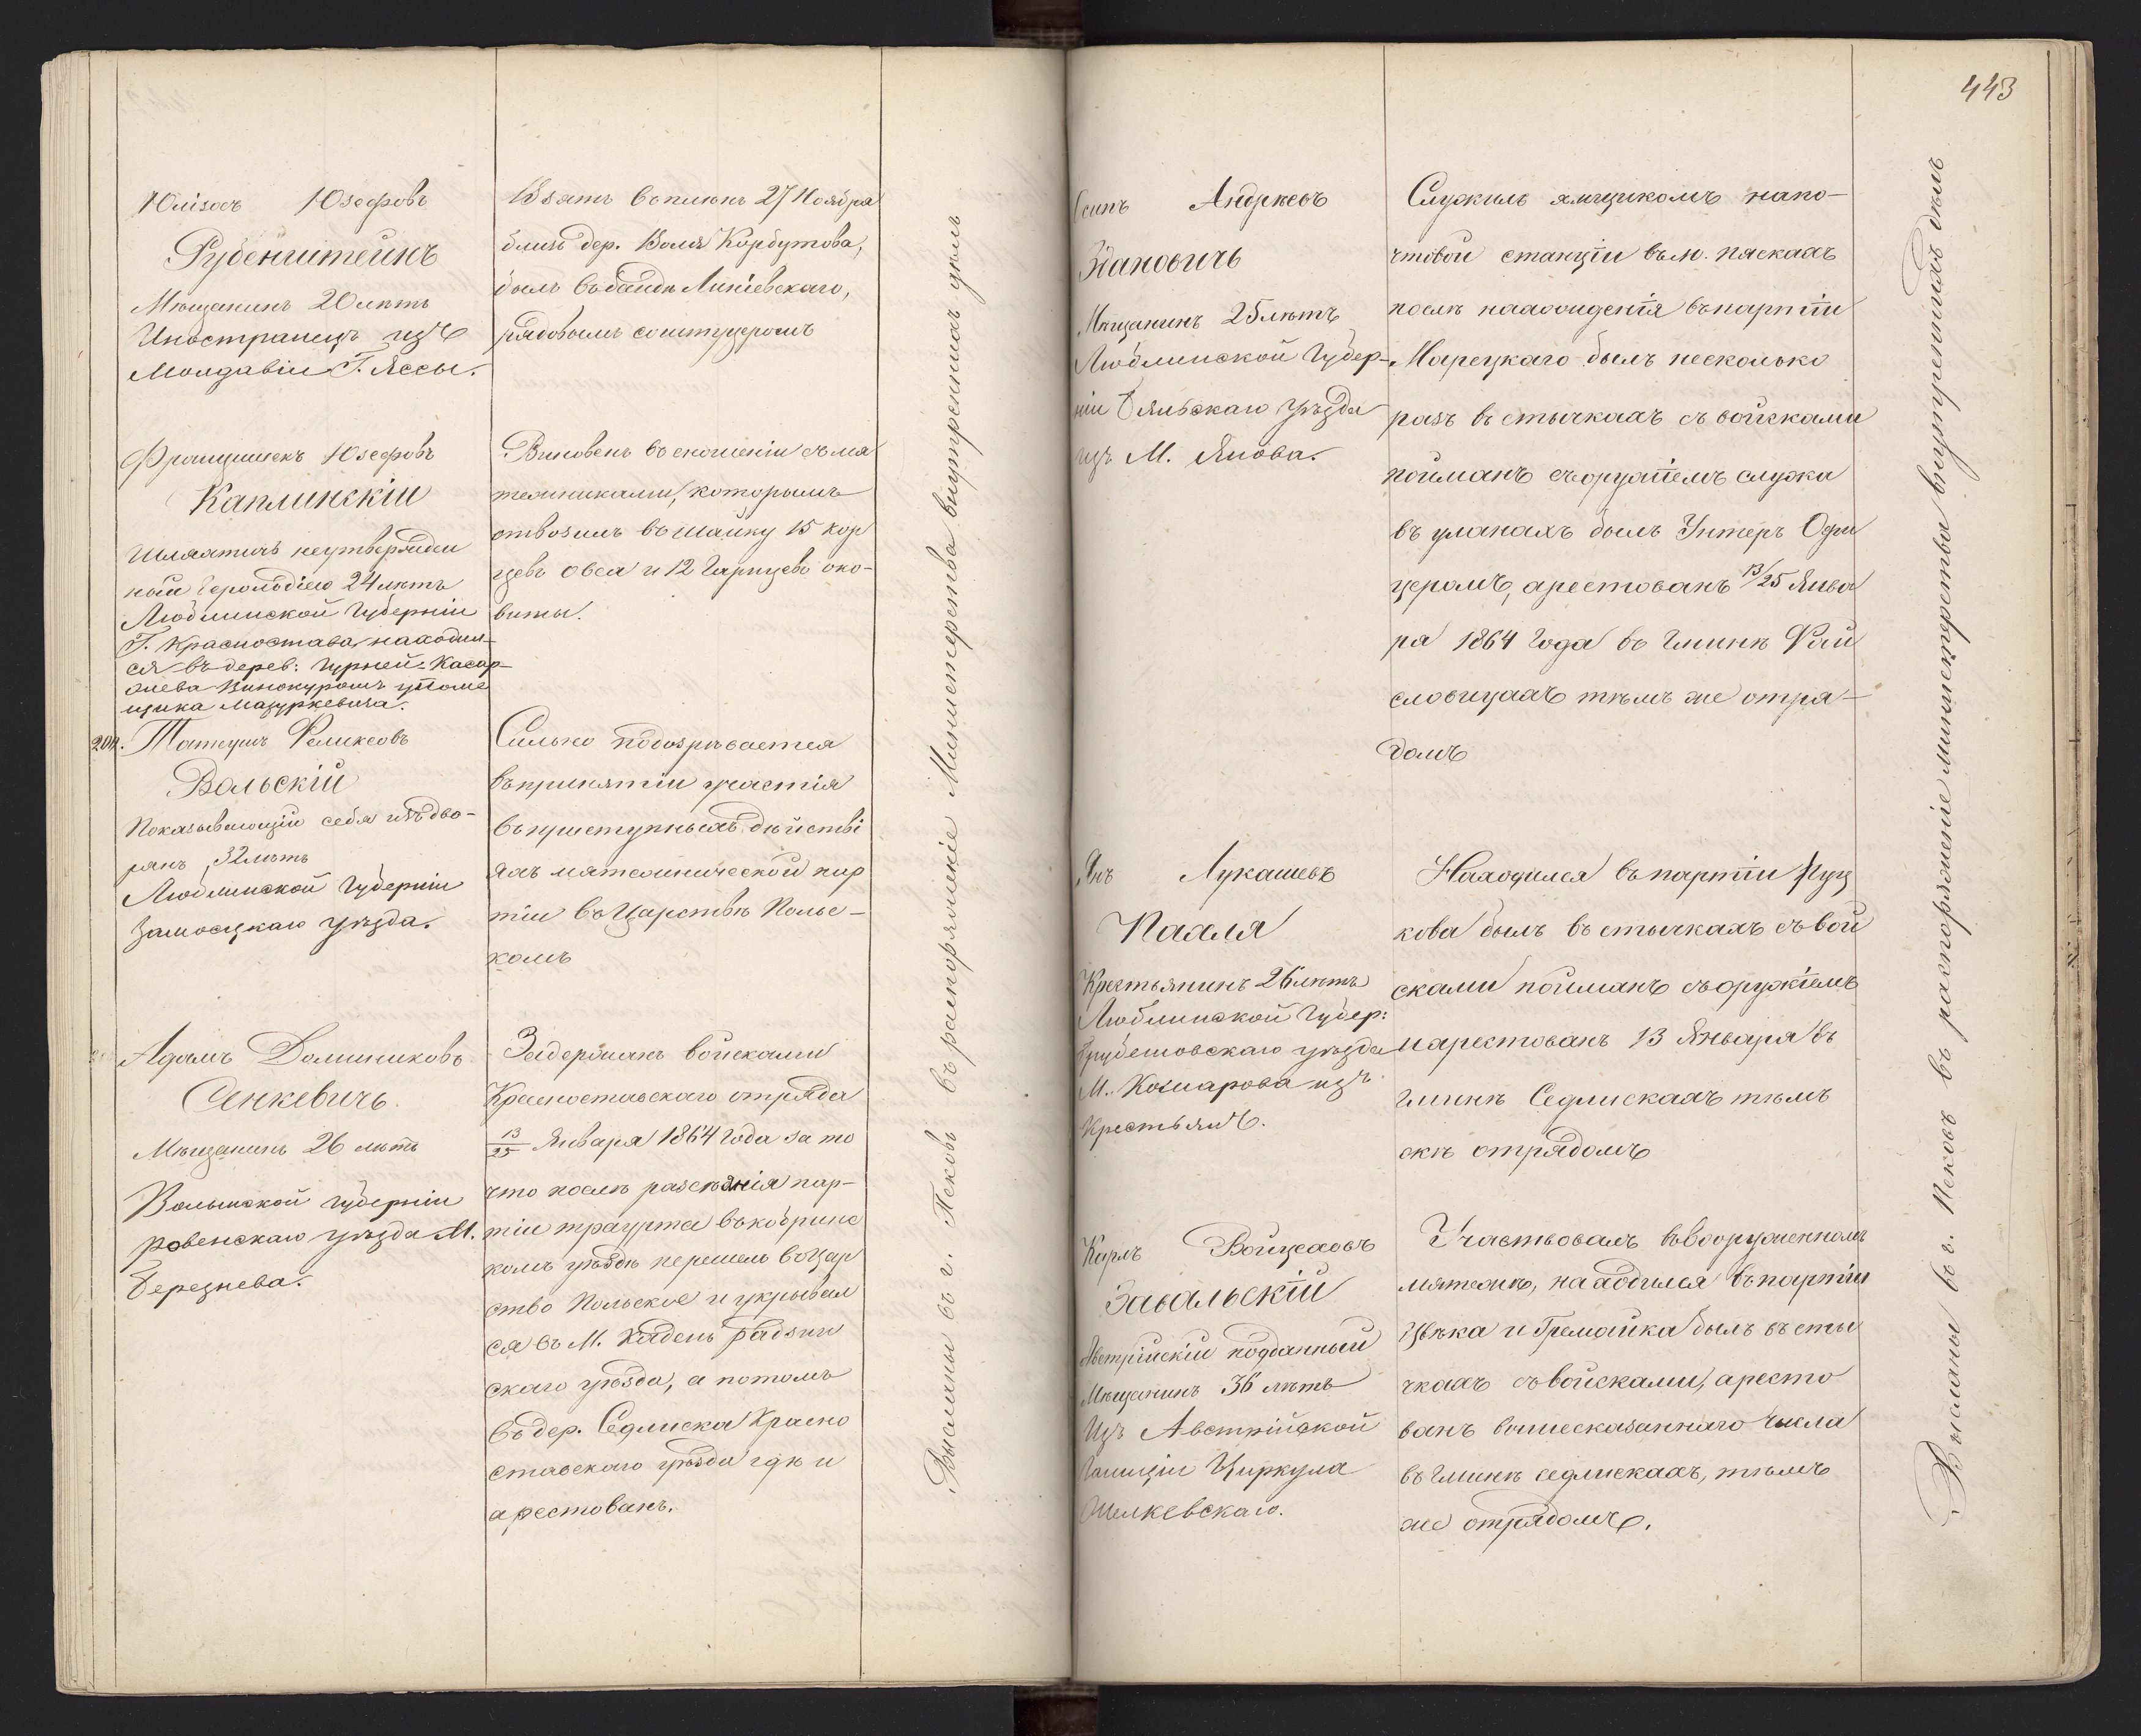 Юліяъ Юзефовъ
Рубенштейнъ
Мѣщанинъ 20 лѣтъ
Иностранецъ изъ
Молдавіи Г. Яссы.
Взятъ въ плѣнъ 27 Ноября
близъ дер. Воля Корбутова,
былъ въ бандѣ Линіевскаго,
рядовымъ со штуцеромъ
Францишекъ Юзефовъ
Каплинскій
Шляхтичъ неутвержден
ный Герольдіею 24 лѣтъ
Люблинской Губерніи
Г. Красностава, находил-
ся въ дерев: Гурней-
Винокуромъ у поме
щика Мазуркевича.
Виновенъ въ сношеніи съ мя
тежниками, которымъ
отвозилъ въ шайку 15 кор
цевъ овса и 12 Гарнцевъ око-
виты.
204. Татеушъ Феликсовъ
Вольскій
Показывающій себя изъ дво-
рянъ, 32 лѣтъ
Люблинской Губерніи
Замосцкаго уѣзда.
Сильно подозрѣвается
въ принятіи участія
въ приступныхъ дѣйстві
яхъ мятежнической пар
тіи въ Царствѣ Польс-
комъ
Адамъ Доминиковъ
Сенкевичъ.
Мѣщанинъ 26 лѣтъ
Волынской Губерніи
ровенскаго уѣзда М.
Березнева.
Задержанъ войсками
Красноставскаго отряда
13/25 Января 1864 Года за то
что послѣ разсѣянія пар-
тіи траугута въ кобринс
комъ уѣздѣ перешелъ въ Цар
ство Польское и укрывал
ся въ М. радзин
скаго уѣзда, а потомъ
въ дер. Седлиска Красно
ставскаго уѣзда гдѣ и
арестованъ.
Высланы въ г. Псковъ въ распоряженіе Министерства внутреннихъ дѣлъ
443
Андреевъ
Яновичъ
Мѣщанинъ 25 лѣтъ
Люблинской Губер-
ніи Бяльскаго уѣзда
изъ М. Янова.
Служилъ ямщикомъ на по-
чтовой станціи въ м. пяскахъ
послѣ нахожденія въ партіи
Марецкаго былъ несколько
разъ въ стычкахъ съ войсками
пойманъ съ оружіемъ служа
въ уланахъ былъ Унтеръ Офи
церомъ, арестованъ 13/25 Янва
ря 1864 Года въ Гминѣ Фай
словицахъ тѣмъ же отря-
домъ
Янъ Лукашевъ
Пахля
Крестьянинъ 26 лѣтъ
Люблинской Губер:
Грубешовскаго уѣзда
М. Комарова изъ
Крестьянъ.
Находился въ партіи Руц
кова былъ въ стычкахъ съ вой
сками пойманъ съ оружіемъ
и арестованъ 13 Января въ
Гминѣ Седлискахъ тѣмъ
же отрядомъ
Карлъ Войцеховъ
Завальскій
Австрійскій подданный
Мѣщанинъ 36 лѣтъ
Изъ Австрійской
Галиціи Циркула
Жолкевскаго.
Участвовалъ въ вооруженномъ
мятежѣ, находился въ партіи
Цвѣка и Гремайка былъ въ сты
чкахъ съ войсками, аресто
ванъ вышесказаннаго числа
въ Гминѣ седлискахъ, тѣмъ
же отрядомъ.
Высланы въ г. Псковъ въ распоряженіе министерства внутреннихъ дѣлъ